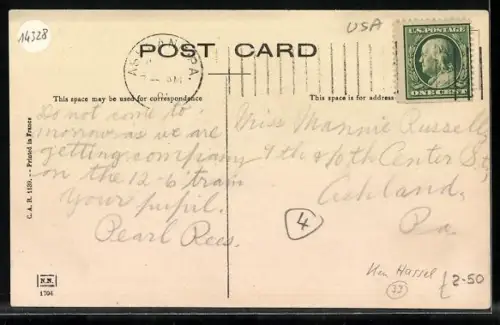 14328
USA
POST CARD
ASHLAND, PA.
U.S. POSTAGE
ONE CENT
This space may be used for correspondence
This space is for address
Do not come to
morrow as we are
getting company
on the 12-6 train
your pupil.
Pearl Rees.
Miss Mannie Russell
9th & 10th Center St,
Ashland,
Pa.
4
C. A. R. 1120. -- Printed in France
N.N.
1704
Von Hassel
£2-50